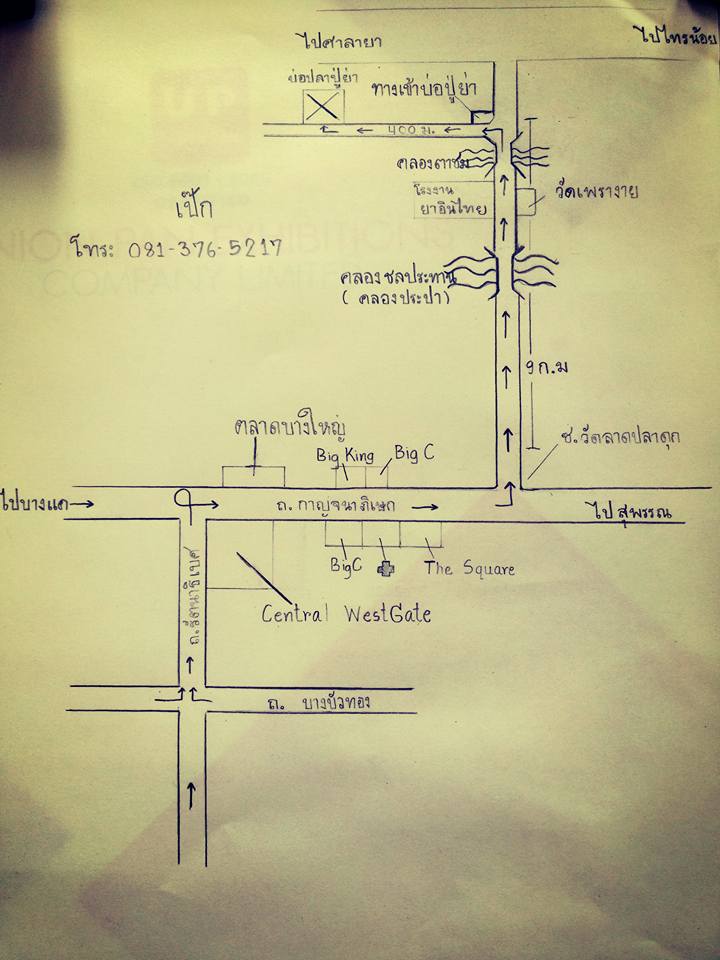 ไปศาลายา
ไปไทรน้อย
บ่อปลาปู่ย่า
ทางเข้าบ่อปู่ย่า
400 ม.
คลองตาชม
โรงงาน
ยาอินไทย
วัดเพรางาย
เป๊ก
โทร: 081-376-5217
คลองชลประทาน
(คลองประปา)
9 ก.ม
ตลาดบางใหญ่
Big King
Big C
ซ.วัดลาดปลาดุก
ไปบางแค
ถ. กาญจนาภิเษก
ไปสุพรรณ
BigC
The Square
ถ.รัตนาธิเบศ
Central WestGate
ถ. บางบัวทอง